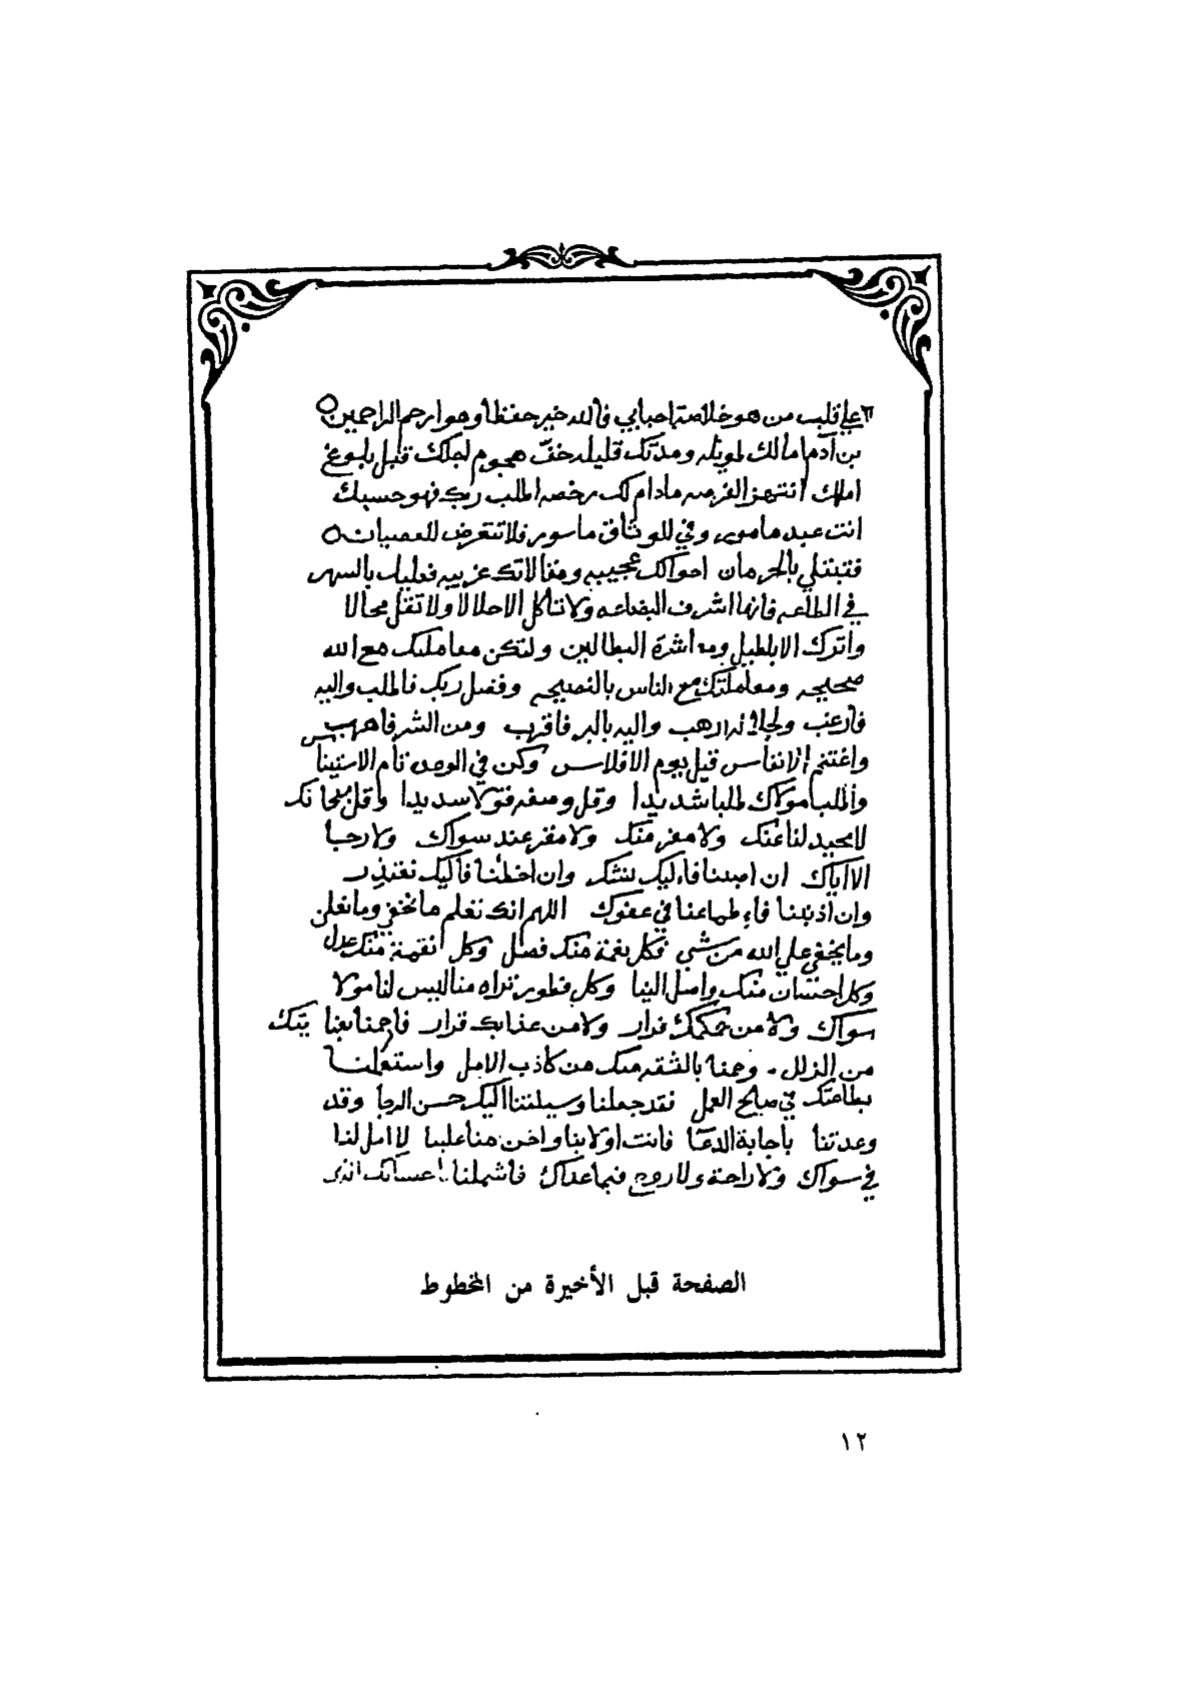 علي قلب من هو خلاصة احبابي فالله خير حفظا وهو ارحم الراحمين
بن آدم امالك طويله ومدتك قليله خف هجوم اجلك قبل بلوغ
املك انتهز الفرصه مادام لك رخصه اطلب ربك فهو حسبك
انت عبد مامور وفي الوثاق ماسور فلا تتعرض للعصيان
فتبتلي بالحرمان احوالك عجيبه ومقالاتك غريبه فعليك بالسهر
في الطاعه فانها اشرف البضاعه ولا تاكل الا حلالا ولا تقل محالا
واترك الاباطيل ومعاشرة البطالين ولتكن معاملتك مع الله
صحيحه ومعاملتك مع الناس بالنصيحه وفضل ربك فاطلب واليه
فارغب ولجلاله ارهب واليه بالبر فاقرب ومن الشر فاهرب
واغتنم الانفاس قبل يوم الافلاس وكن في الوحده تام الاستينا س
واطلب مولاك طلبا شديدا وقل وصفه قولا سديدا وقل سبحانك
لا محيد لنا عنك ولا مفر منك ولا مقر عند سواك ولا رجا
الا اياك ان اصبنا فاليك نشكر وان اخطئنا فاليك نعتذر
وان اذنبنا فاطماعنا في عفوك اللهم انك تعلم ما نخفي وما نعلن
وما يخفي علي الله من شي فكل نعمة منك فضل وكل نقمة منك عدل
وكل احسان منك واصل الينا وكل فطور نراه منا ليس لنا مولا
سواك ولا من حكمك فرار ولا من عذابك قرار فاحمنا بعنا يتك
من الزلل وعنا بالثقه منك من كاذب الامل واستعملنا
بطاعتك في صالح العمل فقد جعلنا وسيلتنا اليك حسن الرجا وقد
وعدتنا باجابة الدعا فانت اولا بنا واحن منا علينا لا امل لنا
في سواك ولا راحة ولا روح فيما عداك فاشملنا
الصفحة قبل الأخيرة من المخطوط
١٢